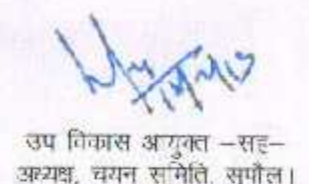 उप विकास आयुक्त –सह–
अध्यक्ष, चयन समिति, सुपौल।